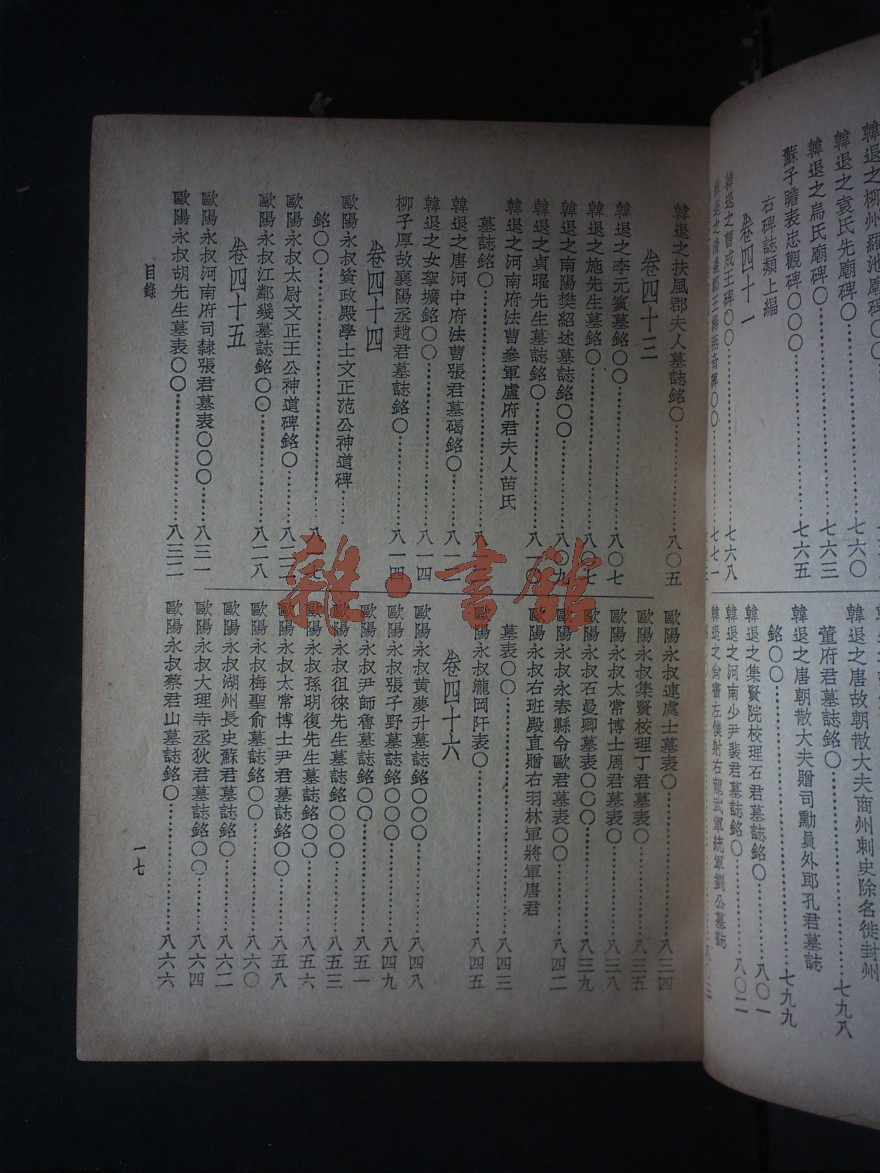 韓退之柳州羅池廟碑〇〇
七六〇
韓退之袁氏先廟碑〇
七六三
韓退之烏氏廟碑〇
七六五
蘇子瞻表忠觀碑〇〇〇
右碑誌類上編
卷四十一
韓退之曹成王碑〇〇
七六八
七七一
韓退之唐故朝散大夫商州刺史除名徙封州
董府君墓誌銘〇
七九八
韓退之唐朝散大夫贈司勳員外郎孔君墓誌
銘〇〇
七九九
韓退之集賢院校理石君墓誌銘〇
八〇一
韓退之河南少尹裴君墓誌銘〇
八〇二
韓退之尚書左僕射右龍武軍統軍劉公墓誌
韓退之扶風郡夫人墓誌銘〇
八〇五
卷四十三
韓退之李元賓墓銘〇〇
八〇七
韓退之施先生墓銘〇〇
八〇七
韓退之南陽樊紹述墓誌銘〇〇
八〇九
韓退之貞曜先生墓誌銘〇〇
八一〇
韓退之河南府法曹參軍盧府君夫人苗氏
墓誌銘〇
韓退之唐河中府法曹張君墓碣銘〇
八一二
韓退之女挐壙銘〇〇
八一四
柳子厚故襄陽丞趙君墓誌銘〇
八一四
卷四十四
歐陽永叔資政殿學士文正范公神道碑
銘〇〇
八一七
歐陽永叔太尉文正王公神道碑銘〇
八二二
歐陽永叔江鄰幾墓誌銘〇〇
八二八
卷四十五
歐陽永叔河南府司錄張君墓表〇〇〇
八三一
歐陽永叔胡先生墓表〇〇
八三二
歐陽永叔連處士墓表〇
八三四
歐陽永叔集賢校理丁君墓表〇
八三五
歐陽永叔太常博士周君墓表〇〇
八三八
歐陽永叔石曼卿墓表〇〇〇
八三九
歐陽永叔永春縣令歐君墓表〇〇
八四二
歐陽永叔右班殿直贈右羽林軍將軍唐君
墓表〇〇
八四三
歐陽永叔瀧岡阡表〇
八四五
卷四十六
歐陽永叔黃夢升墓誌銘〇〇〇
八四八
歐陽永叔張子野墓誌銘〇〇〇
八四九
歐陽永叔尹師魯墓誌銘〇〇
八五一
歐陽永叔徂徠先生墓誌銘〇〇〇
八五三
歐陽永叔孫明復先生墓誌銘〇〇
八五六
歐陽永叔太常博士尹君墓誌銘〇〇
八五八
歐陽永叔梅聖俞墓誌銘〇〇
八六〇
歐陽永叔湖州長史蘇君墓誌銘〇
八六二
歐陽永叔大理寺丞狄君墓誌銘〇〇
八六四
歐陽永叔蔡君山墓誌銘〇
八六六
目錄
一七
雜·書館